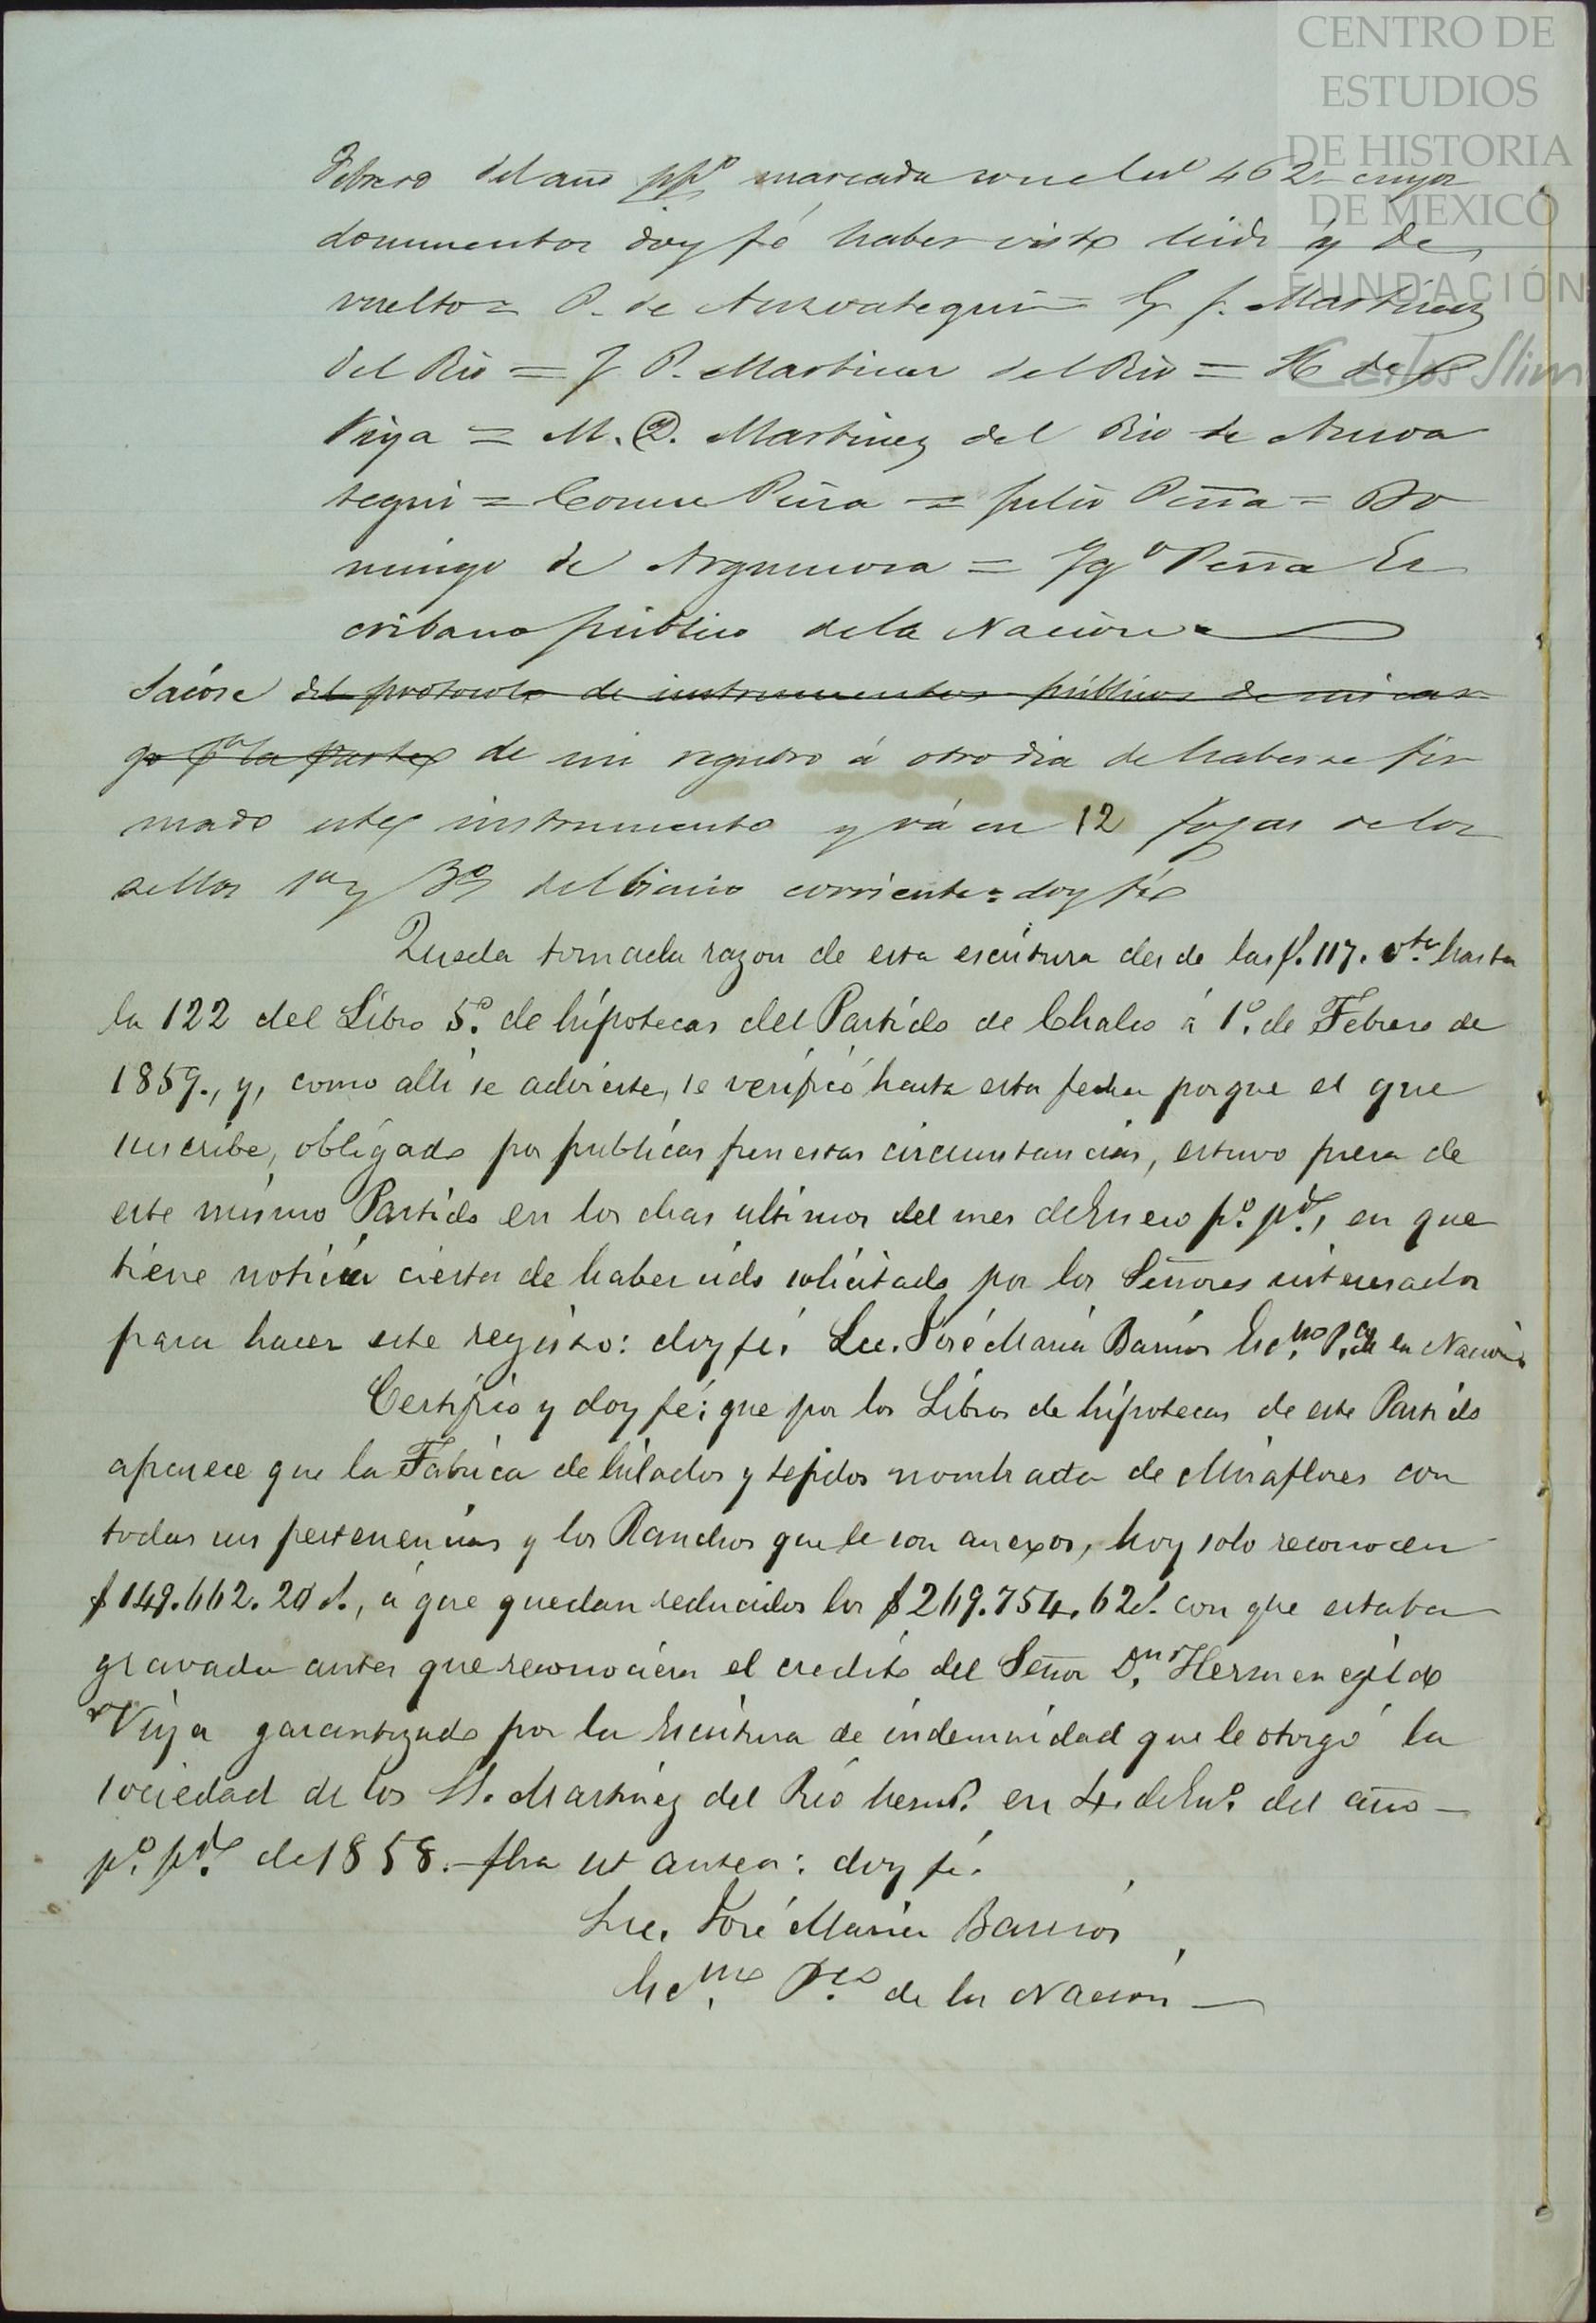 CENTRO DE
ESTUDIOS
DE HISTORIA
DE MEXICO
FUNDACIÓN
Carlos Slim
Febrero del año ppº marcada con el nº 462 = cuyos
documentos doy fé haber visto leido y de
vuelto = P. de Ansoategui = G. J. Martinez
del Rio = J. P. Martinez del Rio = H de
Viya = M. D. Martinez del Rio de Ansoa
tegui = Cosme Peña = Julio Peña = Do
mingo de Argumosa = Ygº Peña Es
cribano público dela Nacion =
Sacóse del protocolo de instrumentos públicos de mi car
go pª la parte de mi registro á otro dia de haberse fir
mado este instrumento y vá en 12 fojas de los
sellos 1º y 3º del bienio corriente = doy fé
Queda tomada razon de esta escritura desde las f. 117. vta. hasta
la 122 del Libro 5º. de hipotecas del Partido de Chalco á 1º. de Febrero de
1859., y, como alli se advierte, se verificó hasta esta fecha porque el que
suscribe, obligado por publicas funestas circunstancias, estuvo fuera de
este mismo Partido en los dias ultimos del mes de Enero pº. pdº., en que
tiene noticia cierta de haber sido solicitado por los Señores interesados
para hacer este registro: doy fé. Lic. José María Barrios Escno. Pco. de la Nacion
Certifico y doy fé: que por los Libros de hipotecas de este Partido
aparece que la Fabrica de hilados y tejidos nombrada de Miraflores con
todas sus pertenencias y los Ranchos que le son anexos, hoy solo reconocen
$ 149.662. 20 c., á que quedan reducidos los $ 269.754. 62 c. con que estaba
gravada antes que reconociera el credito del Señor Dn. Hermenegildo
Viya garantizado por la Escritura de indemnidad que le otorgó la
sociedad de los SS. Martinez del Rio herms. en 4. de Enº. del año
pº. pdº. de 1858. fha ut antea: doy fé.
Lic. José María Barrios
Escno. Pco. de la Nacion